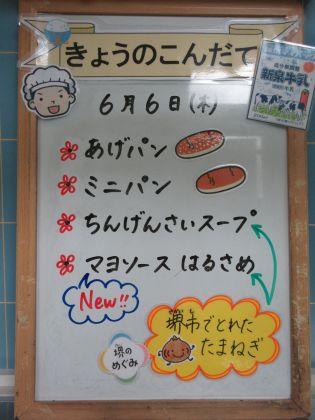 きょうのこんだて
6月6日(木)
あげパン
ミニパン
ちんげんさいスープ
マヨソース はるさめ
New!!
堺市でとれた
たまねぎ
堺のめぐみ
新泉牛乳